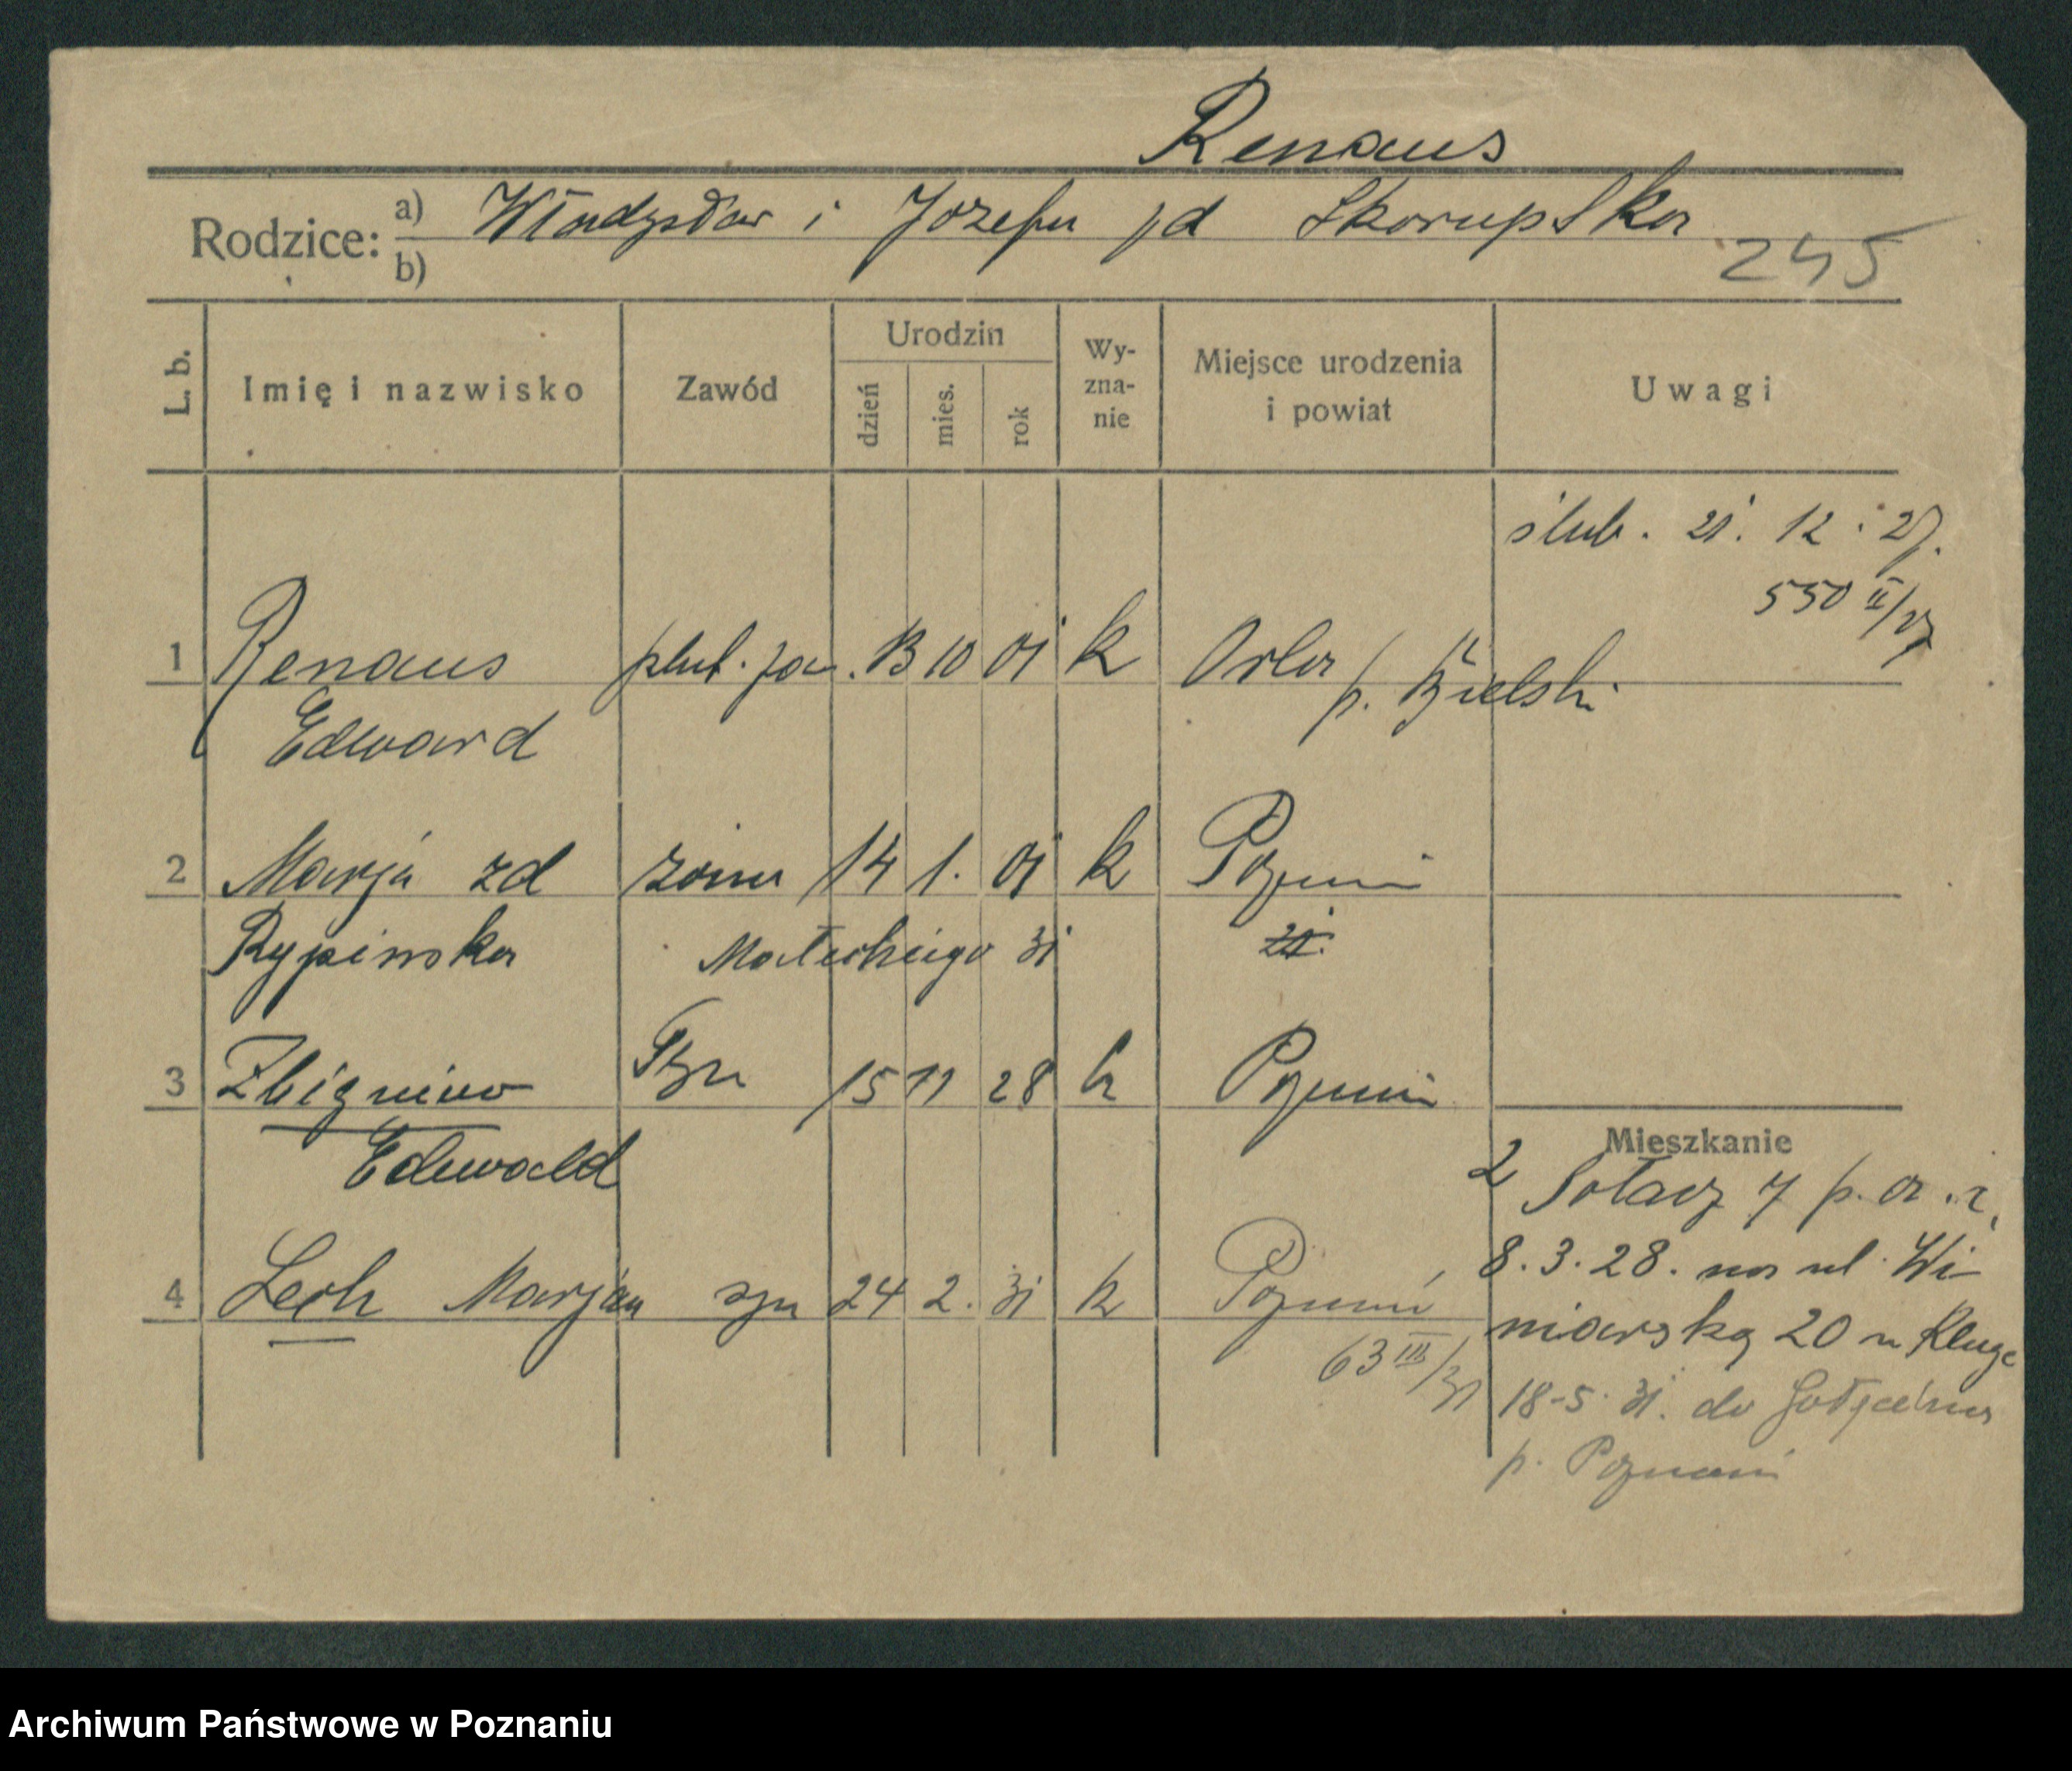 Renaus
Rodzice: a) Władysław i Jozefa zd Skorupska
b)
245
L. b. Imię i nazwisko Zawód Urodzin dzień mies. rok Wy-zna-nie Miejsce urodzenia i powiat Uwagi
ślub. 21. 12. 27.
550 II/27
1 Renaus plut. 13 10 01 k Orla
p. Bielski
Edward
2 Marja zd żona 14 1. 01 k Poznań
Rypinska Małeckiego 31
3 Zbigniew Syn 15 11 28 k Poznań
Edewald
Mieszkanie
2 Sołacz 7 p. a.
8. 3. 28. na ul. Wi-
4 Lech Marjan syn 24 2. 31 k Poznań
niarską 20 u Kluge
63 III/31
18-5. 31. do Gołęcina
p. Poznań
Archiwum Państwowe w Poznaniu